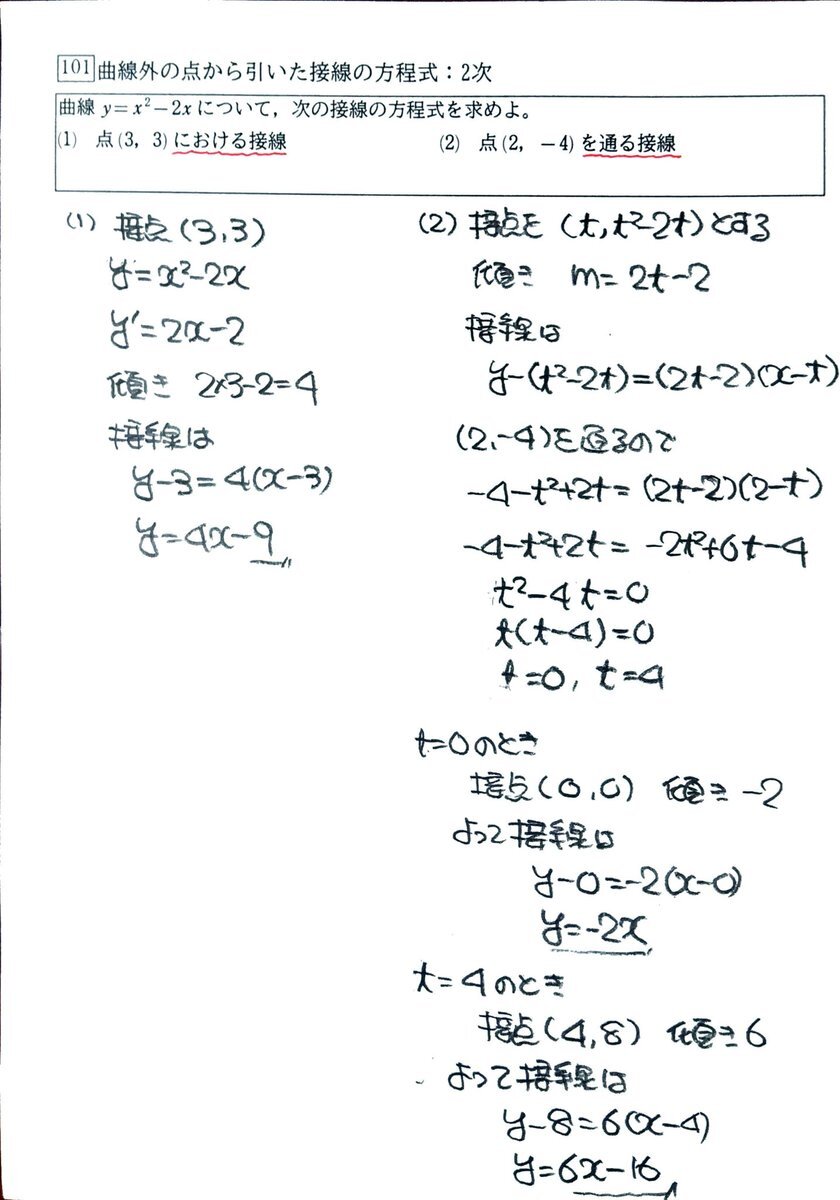 101 曲線外の点から引いた接線の方程式：2次
曲線 y=x²−2x について，次の接線の方程式を求めよ。
(1) 点(3, 3)における接線
(2) 点(2, −4)を通る接線
(1) 接点(3,3)
y=x²−2x
y'=2x−2
傾き 2×3−2=4
接線は
y−3=4(x−3)
y=4x−9
(2) 接点を(t,t²−2t)とする
傾き m=2t−2
接線は
y−(t²−2t)=(2t−2)(x−t)
(2,−4)を通るので
−4−t²+2t=(2t−2)(2−t)
−4−t²+2t=−2t²+6t−4
t²−4t=0
t(t−4)=0
t=0, t=4
t=0のとき
接点(0,0) 傾き−2
よって接線は
y−0=−2(x−0)
y=−2x
t=4のとき
接点(4,8) 傾き6
よって接線は
y−8=6(x−4)
y=6x−16